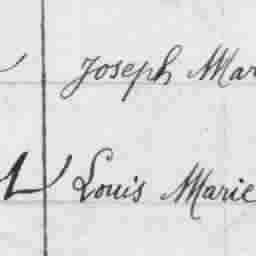 Joseph Mar
Louis Marie